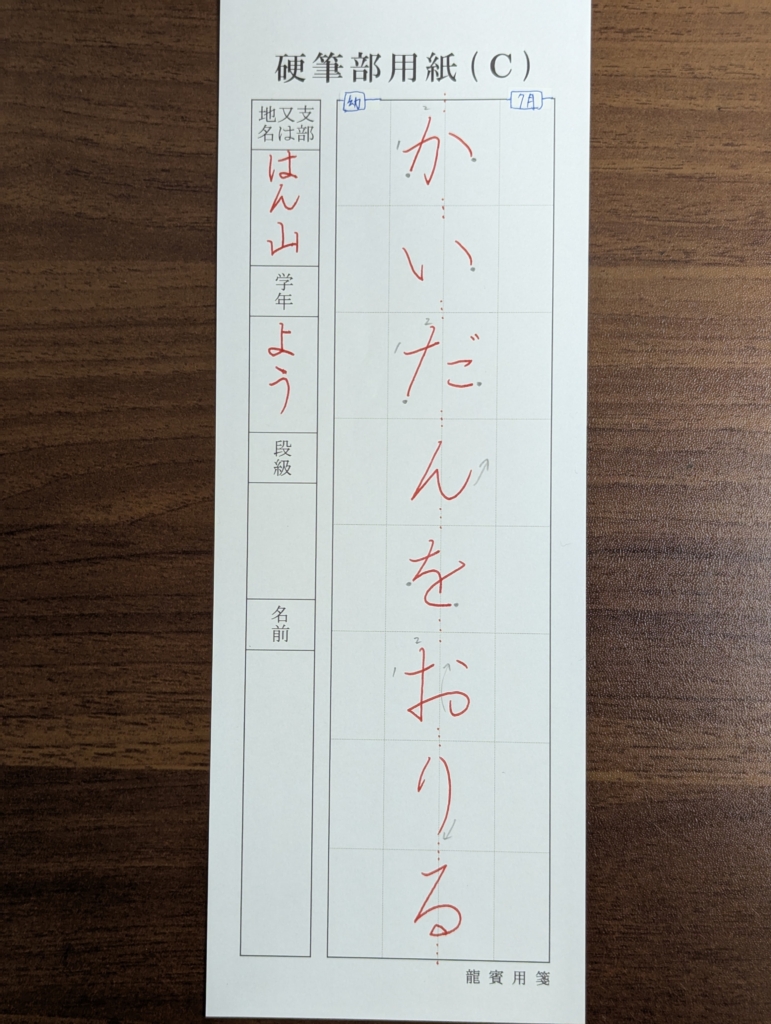 硬筆部用紙(C)
幼
7月
かいだんをおりる
支部
又は
地名
はん山
学年
よう
段級
名前
龍賓用箋